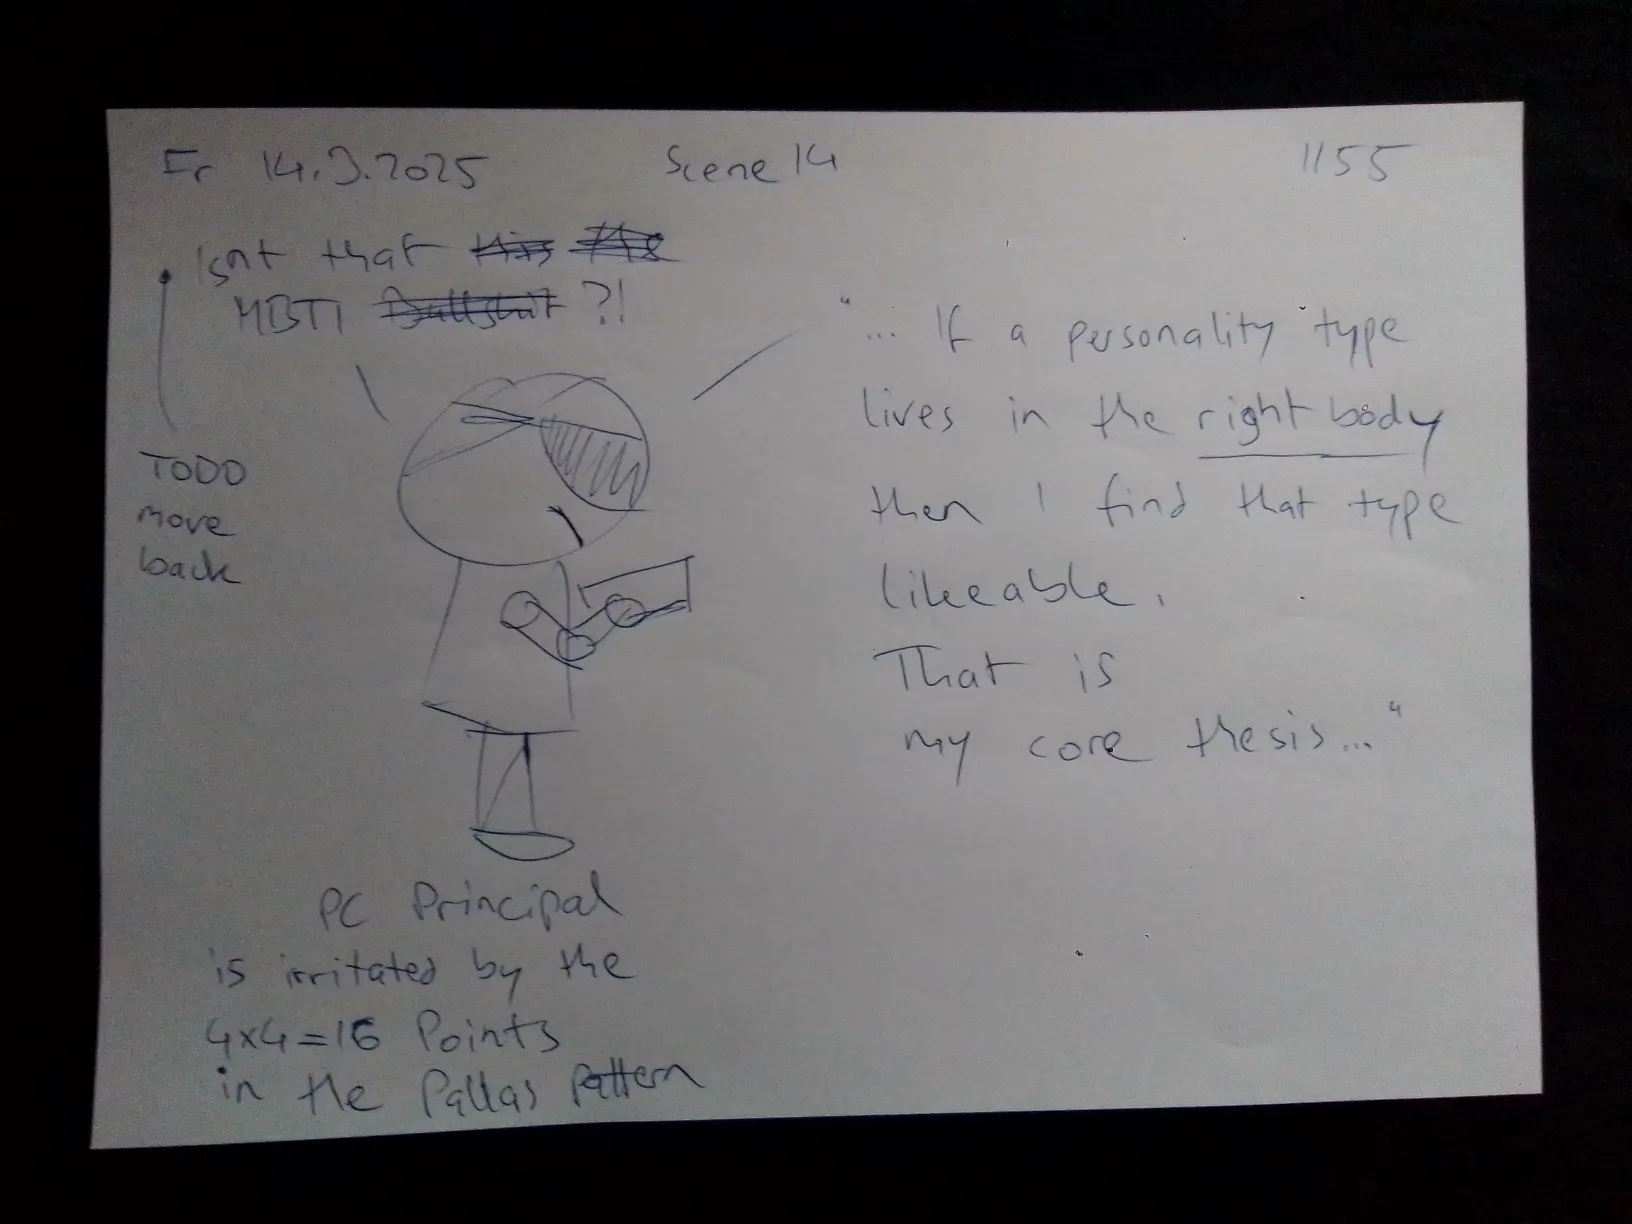 Fr 14.3.2025 Scene 14 1155
Isnt that this the
MBTI Bullshit ?!
TODO
move
back
"... If a personality type
lives in the right body
then I find that type
likeable.
That is
my core thesis..."
PC Principal
is irritated by the
4x4=16 Points
in the Pallas Pattern